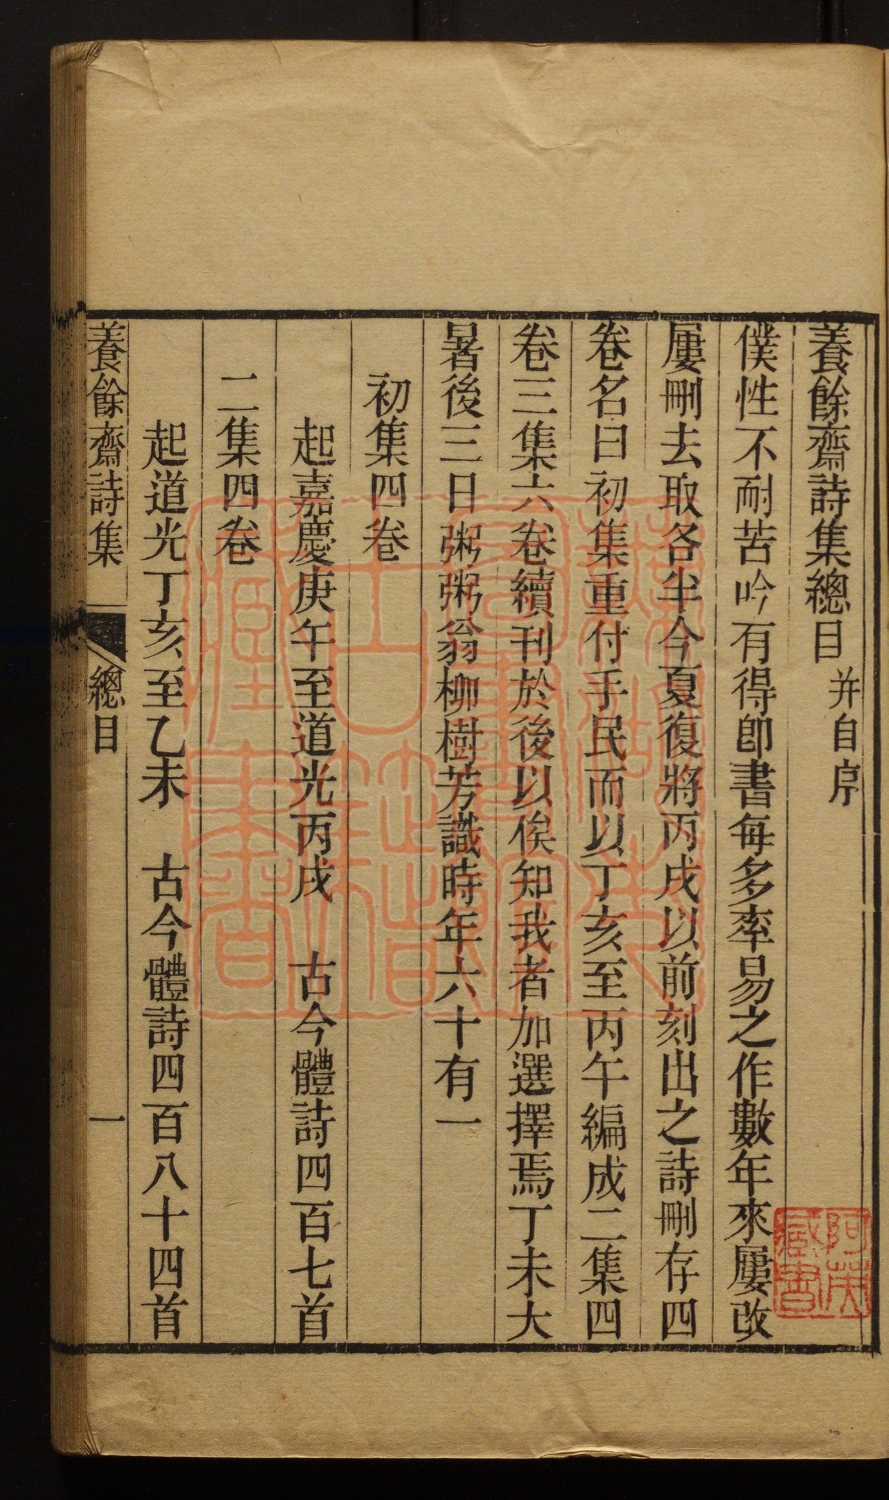 養餘齋詩集總目 并自序
僕性不耐苦吟有得卽書每多率易之作數年來屢改
屢刪去取各半今夏復將丙戌以前刻出之詩刪存四
卷名曰初集重付手民而以丁亥至丙午編成二集四
卷三集六卷續刊於後以俟知我者加選擇焉丁未大
暑後三日粥粥翁柳樹芳識時年六十有一
初集四卷
起嘉慶庚午至道光丙戌 古今體詩四百七首
二集四卷
起道光丁亥至乙未 古今體詩四百八十四首
養餘齋詩集 總目 一